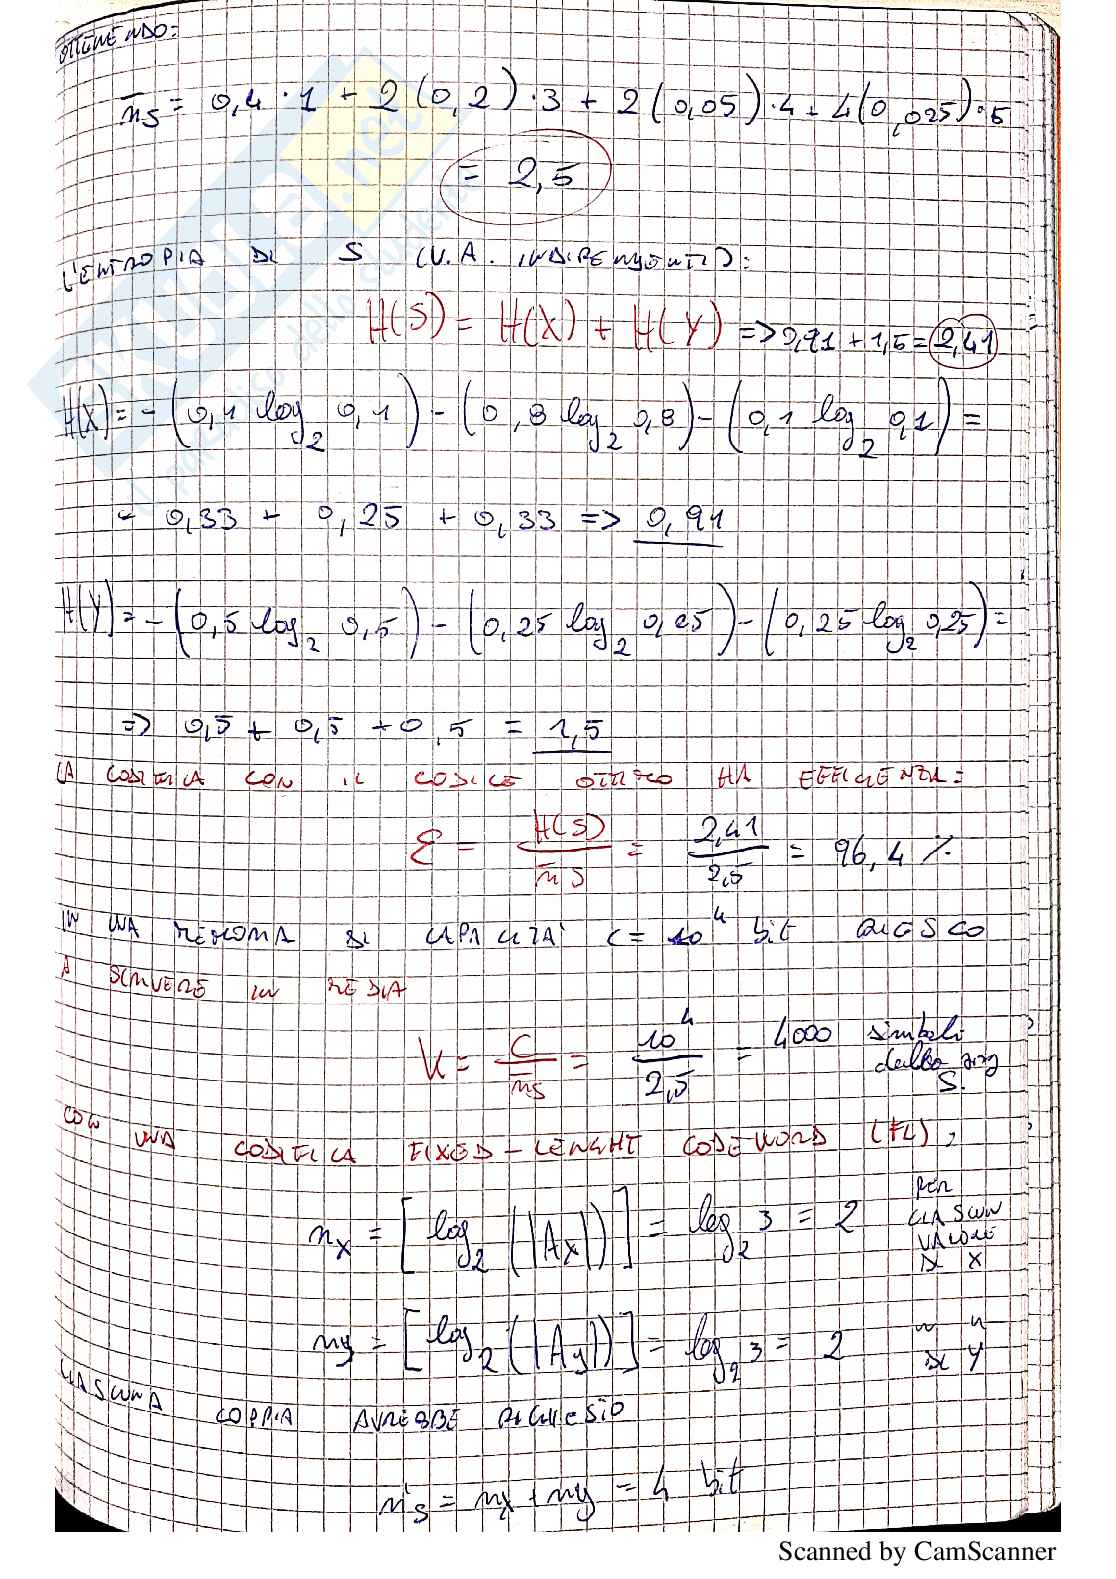 OTTENENDO:
n̄s = 0,4 · 1 + 2 (0,2) · 3 + 2 (0,05) · 4 + 4 (0,025) · 5
= 2,5
L'ENTROPIA DI S (V.A. INDIPENDENTI):
H(S) = H(X) + H(Y) => 0,91 + 1,5 = 2,41
H(X) = - (0,1 log₂ 0,1) - (0,8 log₂ 0,8) - (0,1 log₂ 0,1) =
= 0,33 + 0,25 + 0,33 => 0,91
H(Y) = - (0,5 log₂ 0,5) - (0,25 log₂ 0,25) - (0,25 log₂ 0,25) =
=> 0,5 + 0,5 + 0,5 = 1,5
LA CODIFICA CON IL CODICE OTTIMO HA EFFICIENZA:
ε = H(S) / n̄s = 2,41 / 2,5 = 96,4 %
IN UNA MEMORIA DI CAPACITA' C = 10⁴ bit RIESCO
A SCRIVERE IN MEDIA
K = C / n̄s = 10⁴ / 2,5 = 4000 simboli
S.
CON UNA CODIFICA FIXED-LENGHT CODEWORD (FL),
nx = [log₂ (|Ax|)] = log₂ 3 = 2 PER CIASCUN VALORE DI X
ny = [log₂ (|Ay|)] = log₂ 3 = 2 " " DI Y
CIASCUNA COPPIA AVREBBE RICHIESTO
n's = nx + ny = 4 bit
Scanned by CamScanner